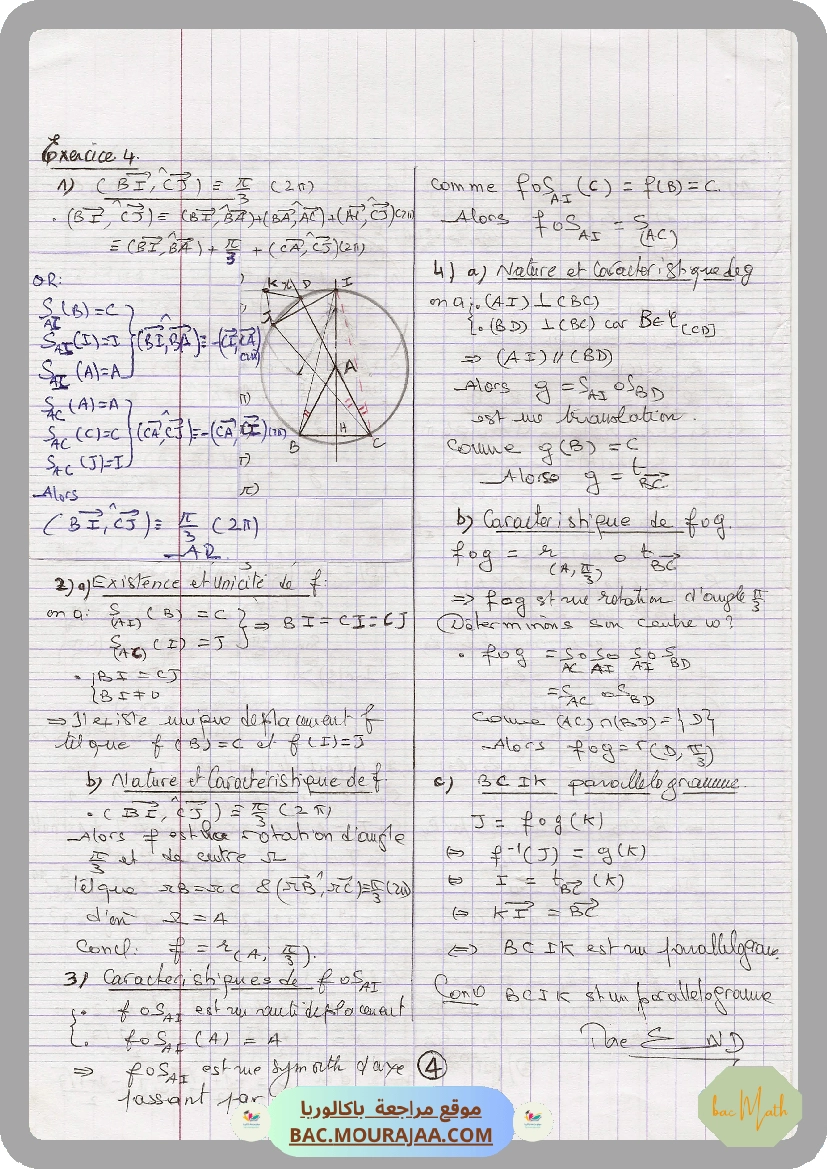 Exercice 4.
1) (BI, CJ) ≡ π/3 (2π)
• (BI, CJ) ≡ (BI, BA) + (BA, AC) + (AC, CJ) (2π)
≡ (BI, BA) + π/3 + (CA, CJ) (2π)
OR:
S_AI (B) = C
S_AI (I) = I } (BI, BA) ≡ -(CI, CA) (2π)
S_AI (A) = A
S_AC (A) = A
S_AC (C) = C } (CA, CJ) ≡ -(CA, CI) (2π)
S_AC (J) = I
Alors
(BI, CJ) ≡ π/3 (2π)
K D I
J
A
H
B C
2) a) Existence et Unicité de f:
on a: S_(AI) (B) = C
S_(AC) (I) = J } ⇒ BI = CI = CJ
• { BI = CJ
BI ≠ 0
⇒ Il existe unique deplacement f
tel que f(B) = C et f(I) = J
b) Nature et Caractéristique de f
• (BI, CJ) ≡ π/3 (2π)
Alors f est une rotation d'angle
π/3 et de centre Ω
telque ΩB = ΩC & (ΩB, ΩC) ≡ π/3 (2π)
d'où Ω = A
Concl: f = r(A, π/3).
3) Caractéristiques de foS_AI
{ • foS_AI est un antideplacement
• foS_AI (A) = A
⇒ foS_AI est une symorth d'axe
passant par
Comme foS_AI (C) = f(B) = C.
Alors foS_AI = S_(AC)
4) a) Nature et Caractéristique de g
on a { • (AI) ⊥ (BC)
• (BD) ⊥ (BC) car B ∈ ζ[CD]
⇒ (AI) // (BD)
Alors g = S_AI o S_BD
est une translation.
Comme g(B) = C
Alors g = t_BC
b) Caracteristique de fog.
fog = r(A, π/3) o t_BC
⇒ fog est une rotation d'angle π/3
Déterminons son centre ω?
• fog = S_AC o S_AI o S_AI o S_BD
= S_AC o S_BD
Comme (AC) ∩ (BD) = {D}
Alors fog = r(D, π/3)
c) BCIK parallelogramme.
J = fog(K)
⇔ f⁻¹(J) = g(K)
⇔ I = t_BC (K)
⇔ KI = BC
⇔ BCIK est un parallelogram
Conc BCIK est un parallelogramme
END
④
موقع مراجعة باكالوريا
BAC.MOURAJAA.COM
bac Math